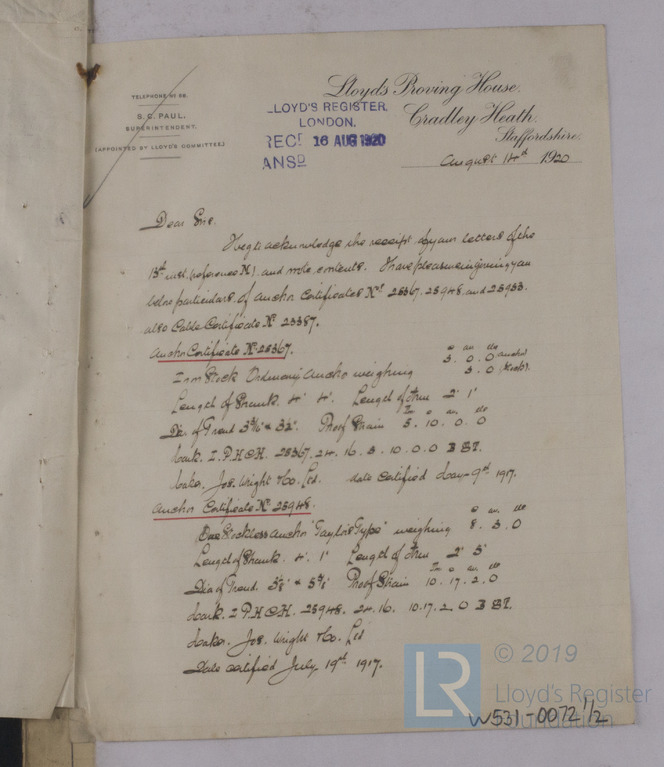 TELEPHONE No 68.
S. C. PAUL,
SUPERINTENDENT.
(APPOINTED BY LLOYD'S COMMITTEE)
LLOYD'S REGISTER,
LONDON.
REC? 16 AUG 1920
ANSD
Lloyds Proving House.
Cradley Heath.
Staffordshire.
August 14th 1920
Dear Sirs.
I beg to acknowledge the receipt of your letters of the
13th inst (reference N) and note contents. I have pleasure in giving you
below particulars of Anchor Certificates Nos 25367. 25948. and 25953.
also Cable Certificate No 23387.
Anchor Certificate No 25367.
c qr. lb
Iron Stock Ordinary Anchor weighing 3. 0. 0 anchor
3. 0 (Stock).
Length of Shank 4' 4". Length of Arm 2' 1"
Dia. of Trend Proof Strain 5. 10. 0. 0
Mark. L.P.H C.H. 25367. 24. 16. 5. 10. 0. 0
Maker. Jos. Wright & Co. Ltd. date certified 9th 1917.
Anchor Certificate No 25948.
c qr. lb
One Stockless Anchor "Taylors Type" weighing 8. 3. 0
Length of Shank. 4' 1" Length of Arm 2' 3"
Dia of Trend. Proof Strain 10. 17. 2. 0
Mark. L.P.H C.H. 25948. 24. 16. 10. 17. 2. 0
Maker. Jos. Wright & Co. Ltd
Date certified July. 19th 1917.
© 2019
LR
Lloyd's Register
Foundation
W531-0072 1/2